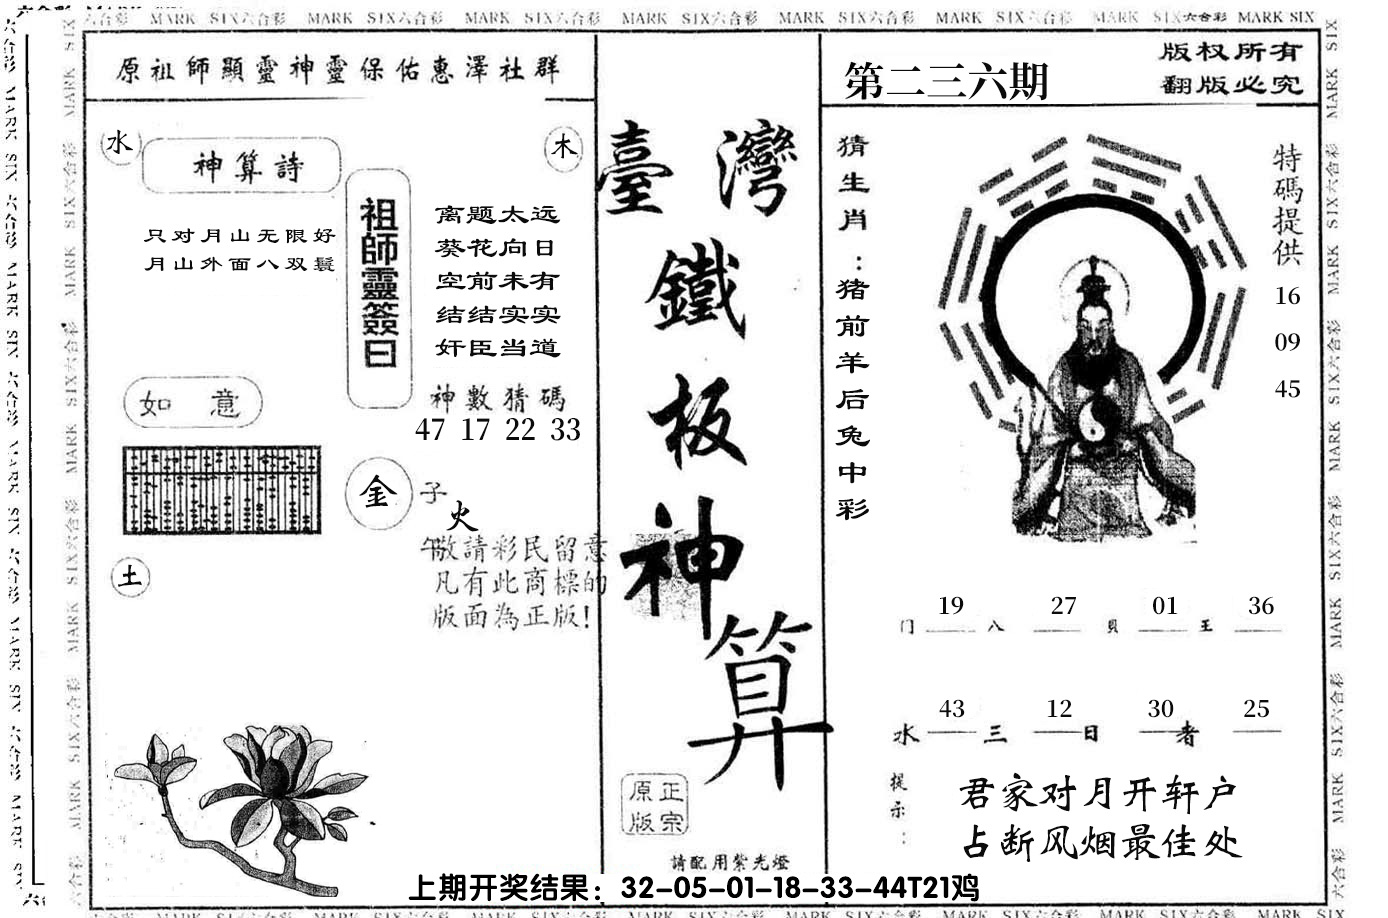 MARK SIX六合彩 MARK SIX六合彩 MARK SIX六合彩 MARK SIX六合彩 MARK SIX六合彩 MARK SIX六合彩 MARK SIX六合彩 MARK SIX六合彩 MARK SIX
原祖師顯靈神靈保佑惠澤社群
水
神算詩
木
只对月山无限好
月山外面八双鬓
祖師靈簽曰
离题太远
葵花向日
空前未有
结结实实
奸臣当道
神數猜碼
47 17 22 33
如意
金
子
火
午
敬請彩民留意
凡有此商標的
版面為正版!
土
臺灣
鐵
板
神
算
正宗
原版
請配用紫光燈
第二三六期
版权所有
翻版必究
猜生肖:猪前羊后兔中彩
特碼提供
16
09
45
19 27 01 36
门 八 贝 王
43 12 30 25
水 三 日 者
提示:
君家对月开轩户
占断风烟最佳处
上期开奖结果：32-05-01-18-33-44T21鸡